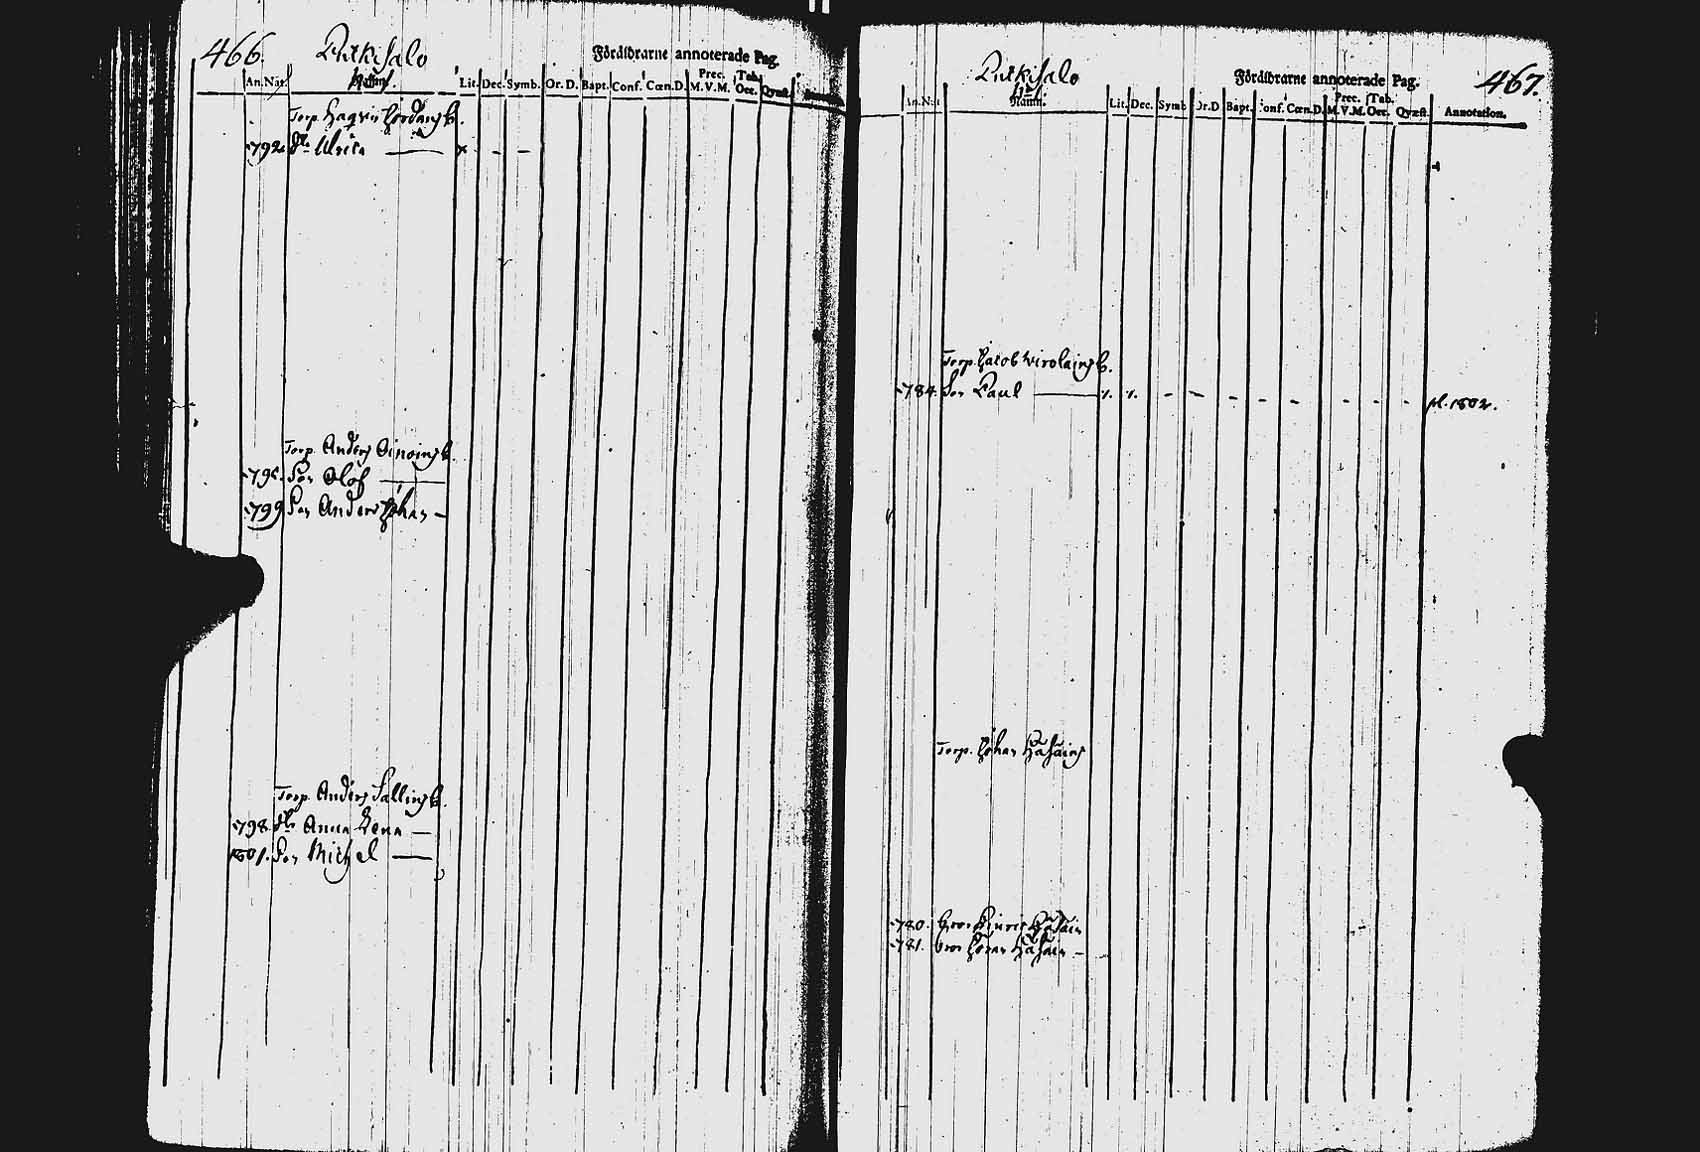 466. Putkisalo
Föräldrarne annoterade Pag.
An. När Namn. Lit. Dec. Symb. Or. D. Bapt. Conf. Cœn. D. Prec. M. V. M. Tab. Oec. Qvæst.
Torp.
792. Ulrica — x - - -
Torp. Anders
Son Olof —
799 Son Anders Johan —
Torp. Anders Sallings B.
798. Anna Lena —
1801. Son Michel —
Putkisalo 467.
Föräldrarne annoterade Pag.
An. Nä Namn. Lit. Dec. Symb Or. D Bapt. Conf. Cœn. D. Prec. M. V. M. Tab. Oec. Qvæst. Annotation.
Torp. Jacob Wirolains B.
784. Son Paul — - - - - - - - - 1802.
Torp. Johan
780. Bror Hinric
781. Bror Göran —